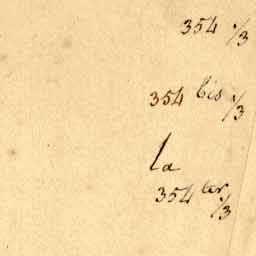 354 1/3
354 bis 1/3
la
354 ter 1/3